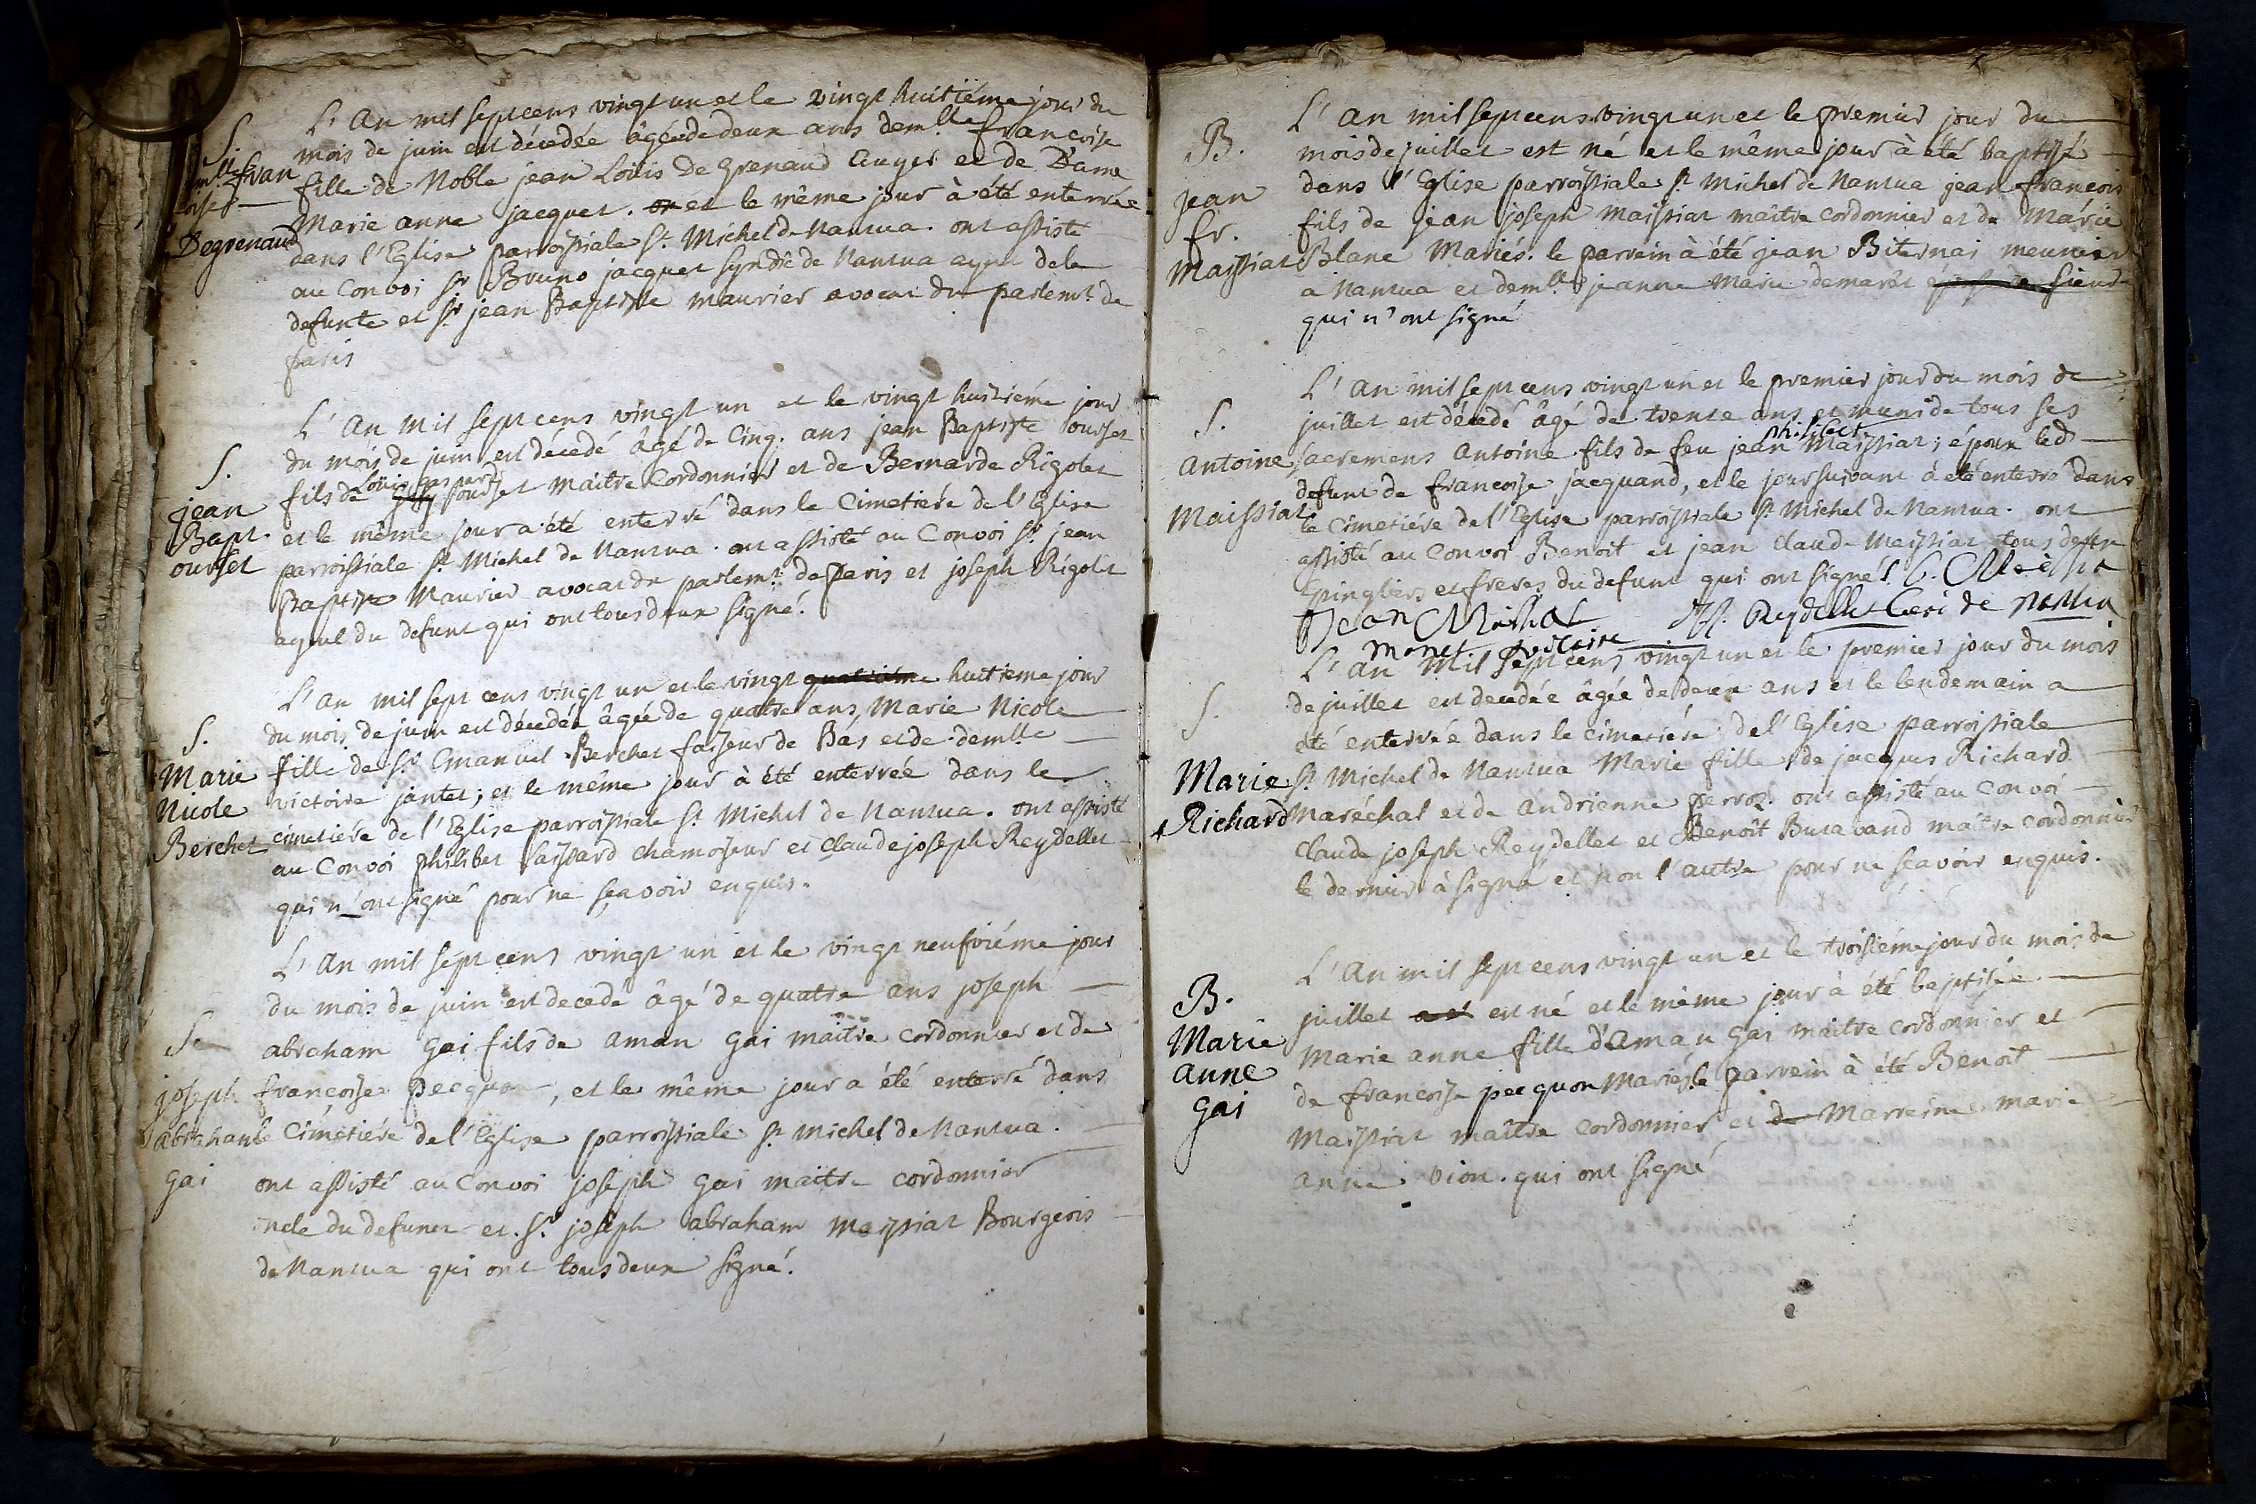 S.
fran
Degrenaud
L'An mil sept cens vingt un et le vingt huitiéme jour du
mois de juin est décedée âgée de deux ans dem.lle francoise
fille de Noble jean Loüis de grenaud Ecuyer et de Dame
Marie anne jacquet. et le même jour à été enterrée
dans l'Eglise parroissiale St. Michel de Nantua. ont assiste
au Convoi Sr Bruno jacquet syndic de Nantua ayeul de la
defunte et Sr jean Baptiste maurier avocat du parlemt. de
paris
S.
jean
Bapt.
ourset
L'An mil sept cens vingt un et le vingt huitiéme jour
du mois de juin est décedé âgé de Cinq. ans jean Baptiste ourset
fils de Loüis gaspard ourset maitre Cordonnier et de Bernarde Rigolet
et le même jour a été enterré dans le Cimetiére de l'Eglise
parroissiale St. Michel de Nantua. ont assisté au Convoi Sr. jean
Baptiste Maurier avocat du parlemt. de paris et joseph Rigolet
ayeul du defunt qui ont tous deux signé.
S.
Marie
Nicole
Berchet
L'An mil sept cens vingt un et le vingt quatriéme huitieme jour
du mois de juin est décedée âgée de quatre ans, Marie Nicole
fille de Sr. Emanuel Berchet faiseur de Bas et de demlle
victoire jantet; et le même jour à été enterrée dans le
cimetiére de l'Eglise parroissiale St. Michel de Nantua. ont assisté
au Convoi philibert Saissard chamoiseur et Claude joseph Reydellet
qui n'ont signé pour ne sçavoir enquis.
S.
joseph
abraham
gai
L'An mil sept cens vingt un et le vingt neufviéme jour
du mois de juin est decedé âgé de quatre ans joseph
abraham gai fils de aman gai maitre cordonnier et de
francoise pecquon, et le même jour a été enterré dans
le Cimetiére de l'Eglise parroissiale St. michel de Nantua.
ont assisté au Convoi joseph gai maitre cordonnier
oncle du defunct et Sr. joseph abraham maissiat Bourgeois
de Nantua qui ont tous deux signé.
B.
jean
fr.
maissiat
L'An mil sept cens vingt un et le premier jour du
mois de juillet est né et le même jour à été baptisé
dans l'Eglise parroissiale St. Michel de Nantua jean francois
fils de jean joseph maissiat maitre cordonnier et de Marie
Blanc Mariés. le parrein à été jean Biternai meunier
a Nantua et dem.lle jeanne Marie demarêt épouse de sieur
qui n'ont signé
S.
Antoine
Maissiat
L'An mil sept cens vingt un et le premier jour du mois de
juillet est décedé âgé de trente ans et muni de tous ses
philibert
sacremens Antoine fils de feu jean Maissiat; époux led
defunt de francoise jacquand, et le jour suivant à été enterré dans
le Cimetiére de l'Eglise parroissiale St. Michel de Nantua. ont
assisté au Convoi Benoit et jean Claude Maissiat tous deux
Epingliers et freres du defunt qui ont signé.
Jean
Reydellet Curé de nantua
monet vicaire
S.
Marie
Richard
L'An mil sept cens vingt un et le premier jour du mois
de juillet est decedée âgée de deux ans et le lendemain a
été enterrée dans le cimetiére de l'Eglise parroissiale
St. Michel de Nantua Marie fille de jacques Richard
Maréchal et de andrienne perroz. ont assisté au Convoi
Claude joseph Reydellet et Benoît Butavand maitre cordonnier
le dernier à signé et non l'autre pour ne sçavoir enquis.
B.
Marie
anne
gai
L'An mil sept cens vingt un et le troisiéme jour du mois de
juillet est né et le même jour à été baptisée
Marie anne fille d'aman gai maitre cordonnier et
de francoise pecquon Mariés. le parrein à été Benoit
Maissiat maître cordonnier et Marreine marie
anne vion. qui ont signé